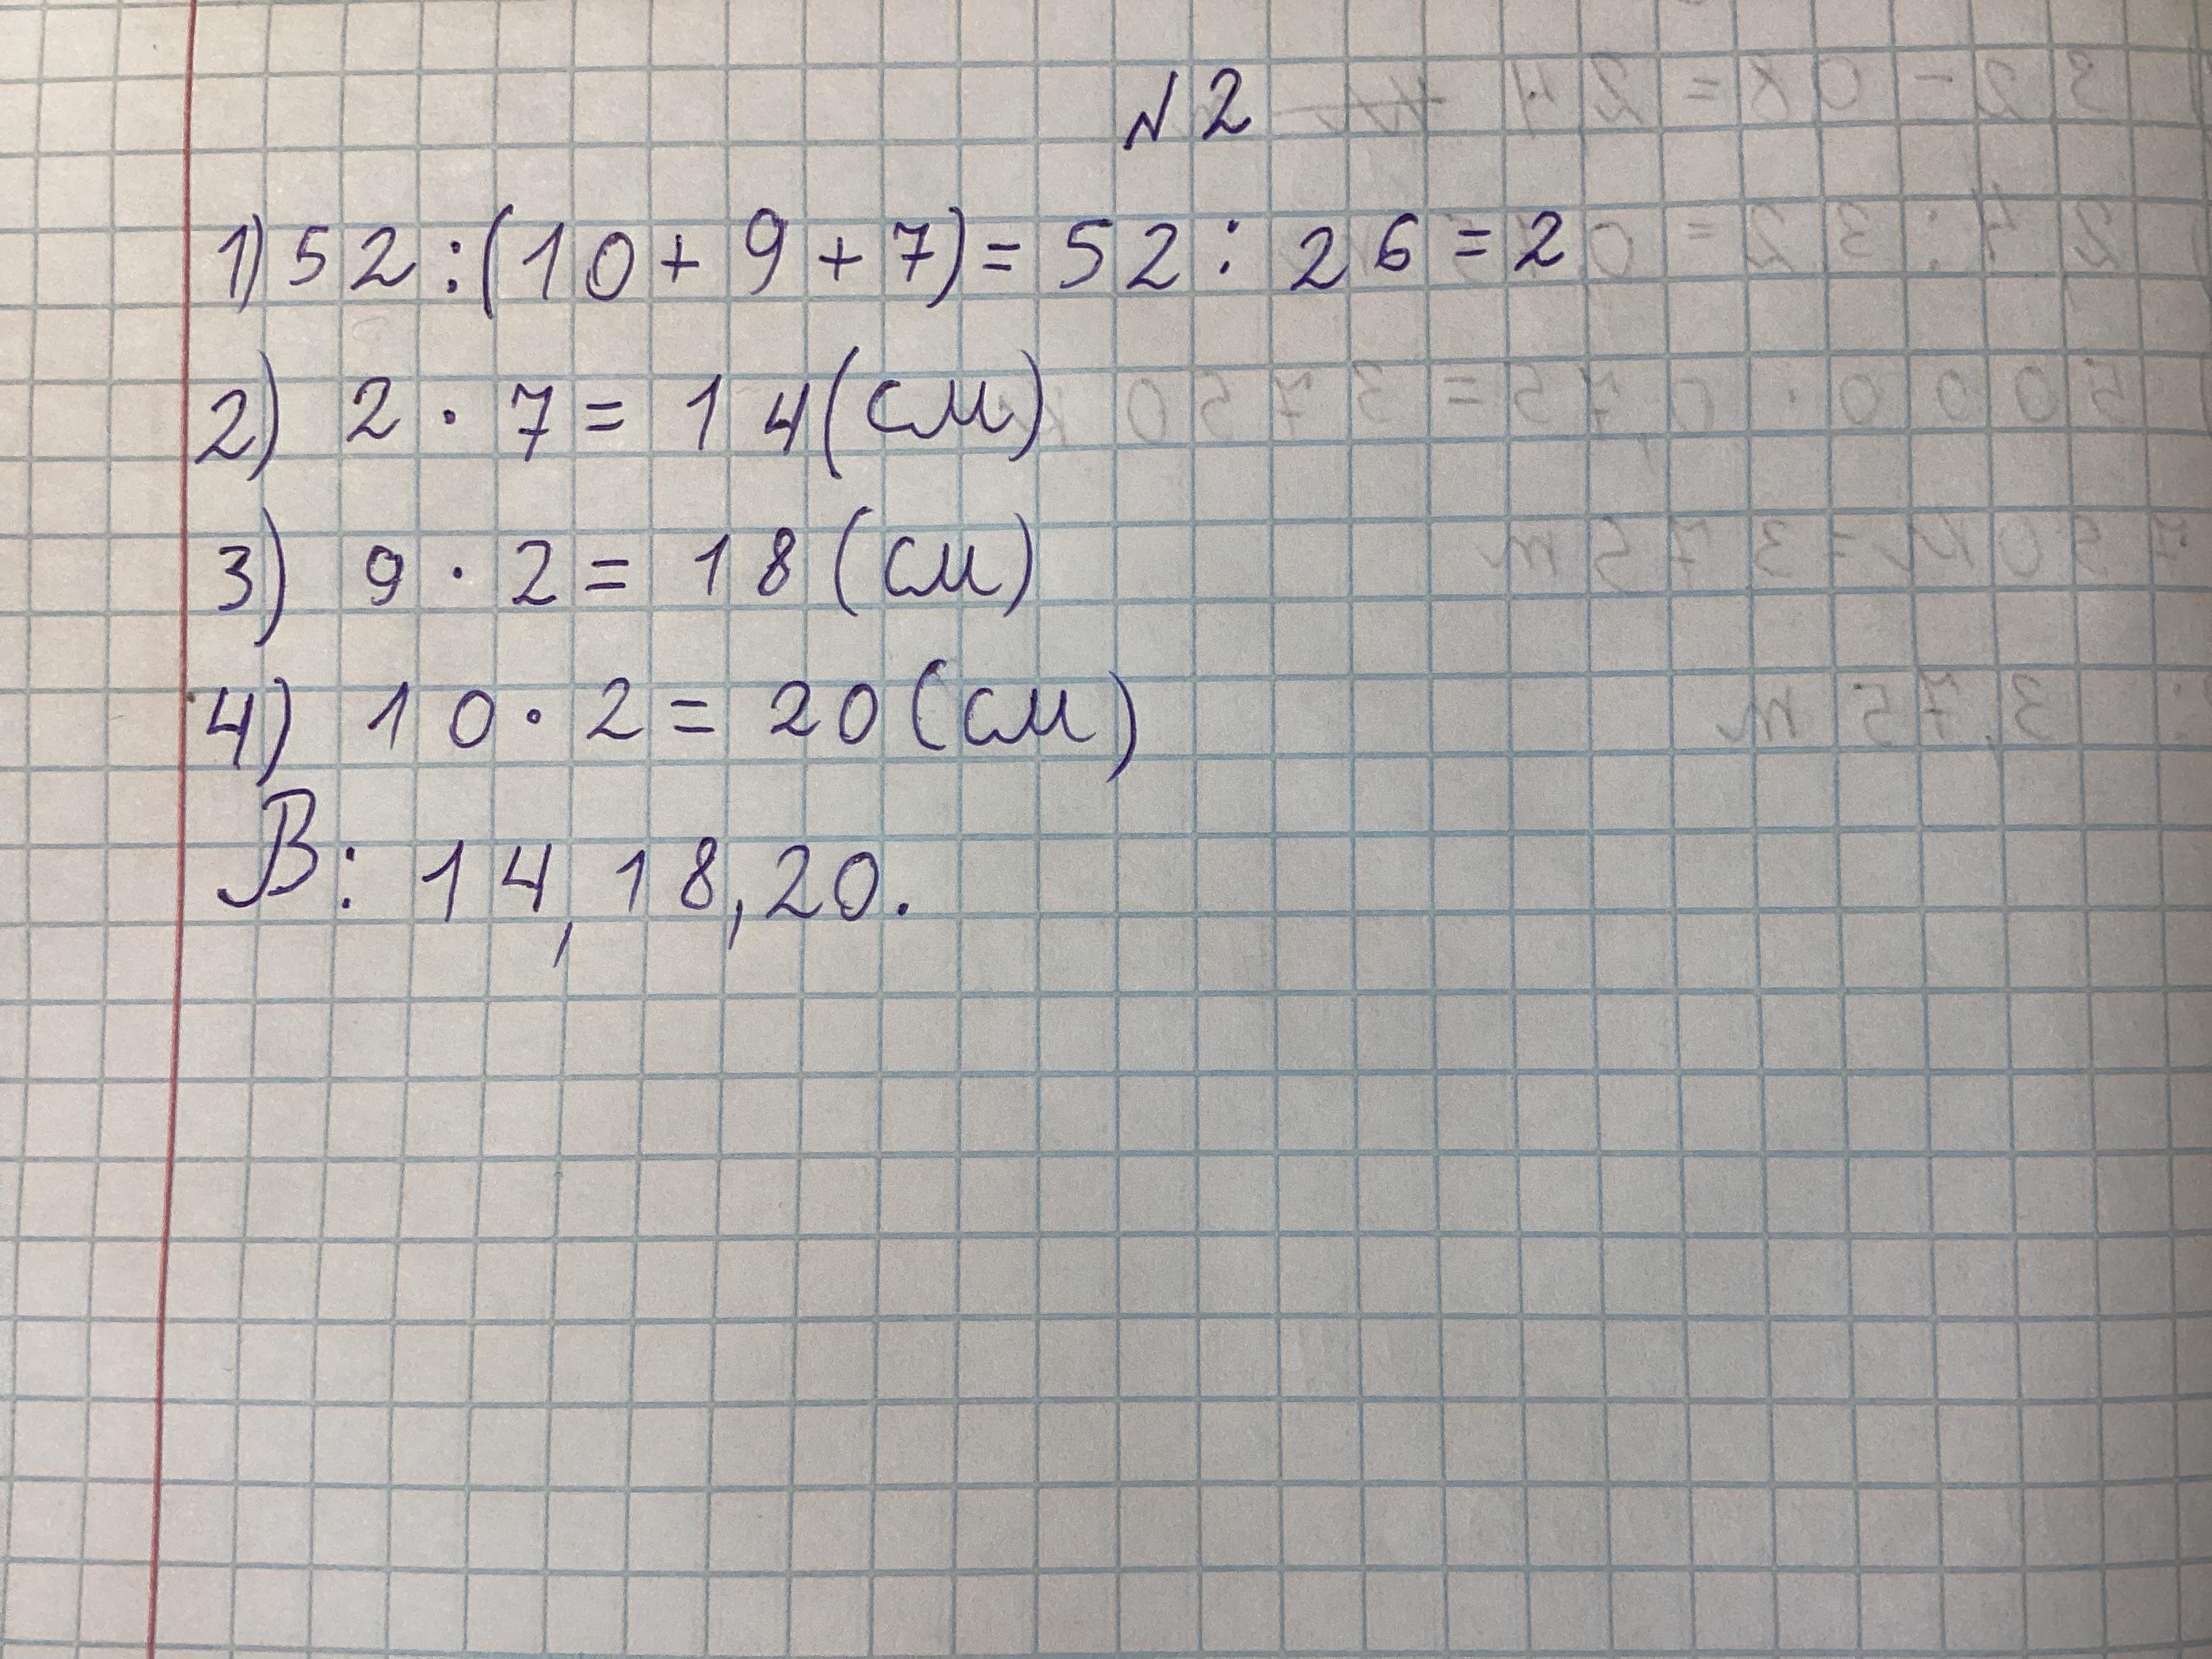 №2
1) 52:(10+9+7)=52:26=2
2) 2·7=14(см)
3) 9·2=18(см)
4) 10·2=20(см)
В: 14, 18, 20.